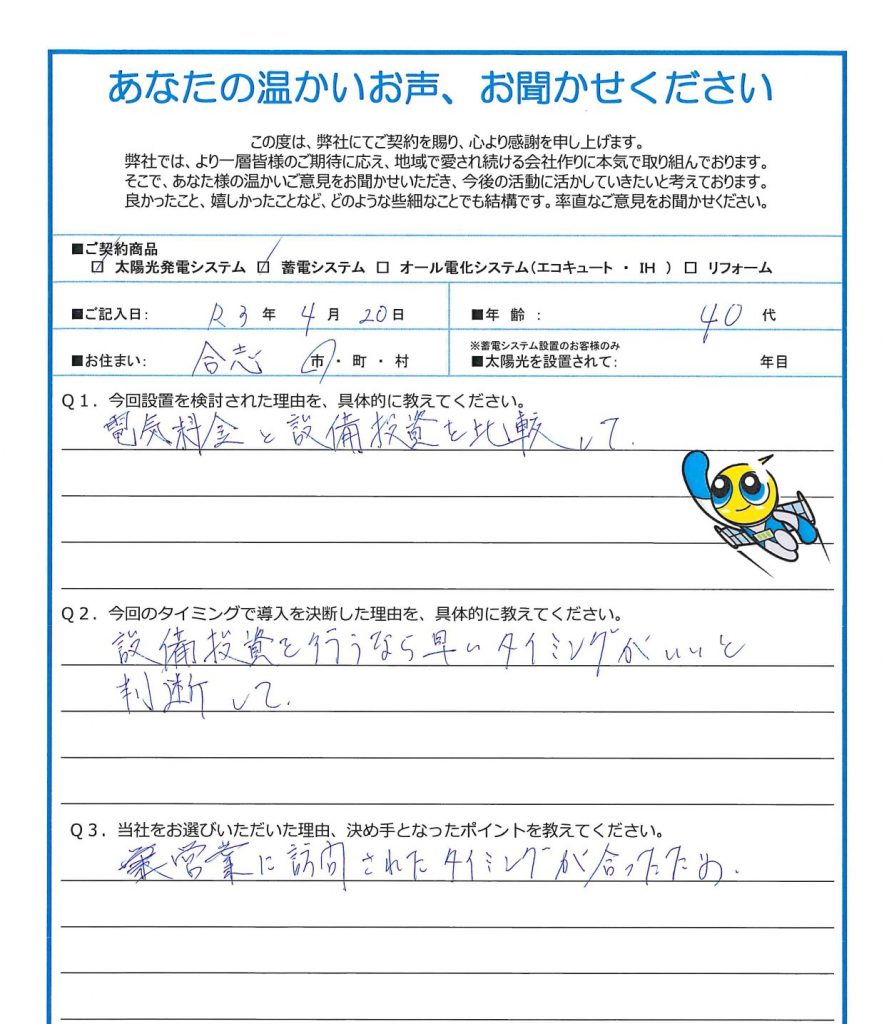 あなたの温かいお声、お聞かせください
この度は、弊社にてご契約を賜り、心より感謝を申し上げます。
弊社では、より一層皆様のご期待に応え、地域で愛され続ける会社作りに本気で取り組んでおります。
そこで、あなた様の温かいご意見をお聞かせいただき、今後の活動に活かしていきたいと考えております。
良かったこと、嬉しかったことなど、どのような些細なことでも結構です。率直なご意見をお聞かせください。
■ご契約商品
☑ 太陽光発電システム ☑ 蓄電システム □ オール電化システム(エコキュート ・ IH ) □ リフォーム
■ご記入日: R3 年 4 月 20日 ■年 齢 : 40 代
■お住まい: 合志 市・町・村 ※蓄電システム設置のお客様のみ
■太陽光を設置されて: 年目
Q1. 今回設置を検討された理由を、具体的に教えてください。
電気料金と設備投資を比較して.
Q2. 今回のタイミングで導入を決断した理由を、具体的に教えてください。
設備投資を行うなら早いタイミングがいいと
判断して.
Q3. 当社をお選びいただいた理由、決め手となったポイントを教えてください。
営業に訪問されたタイミングが合ったため.